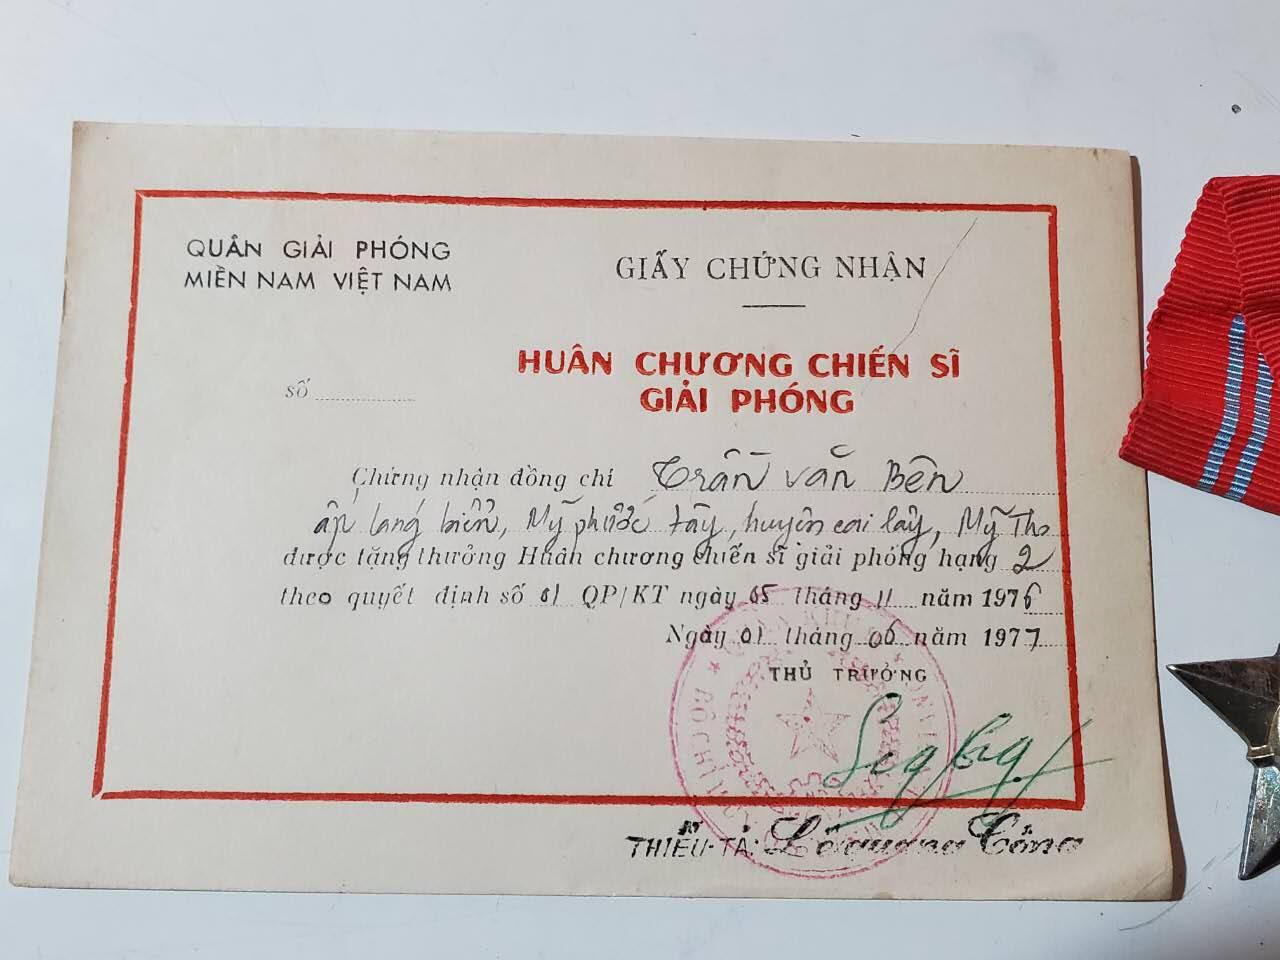 QUÂN GIẢI PHÓNG
MIỀN NAM VIỆT NAM
GIẤY CHỨNG NHẬN
HUÂN CHƯƠNG CHIẾN SĨ
GIẢI PHÓNG
số
Chứng nhận đồng chí Trần văn Bên
ấp láng biển, Mỹ phước tây, huyện cai lậy, Mỹ Tho
được tặng thưởng Huân chương chiến sĩ giải phóng hạng 2
theo quyết định số 01 QP/KT ngày 05 tháng 11 năm 1976
Ngày 01 tháng 06 năm 1977
THỦ TRƯỞNG
THIẾU-TÁ: Lê quang Công